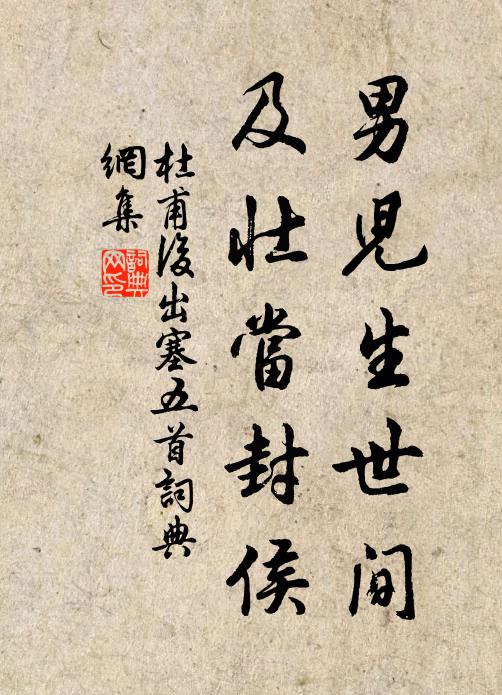 男兒生世間
及壯當封侯
杜甫後出塞五首詞典
網集
詞典
网印